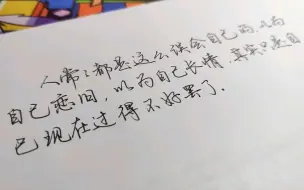 人常々都是这么误会自己的，以为
自己恋旧，以为自己长情，其实只是自
己现在过得不好罢了．